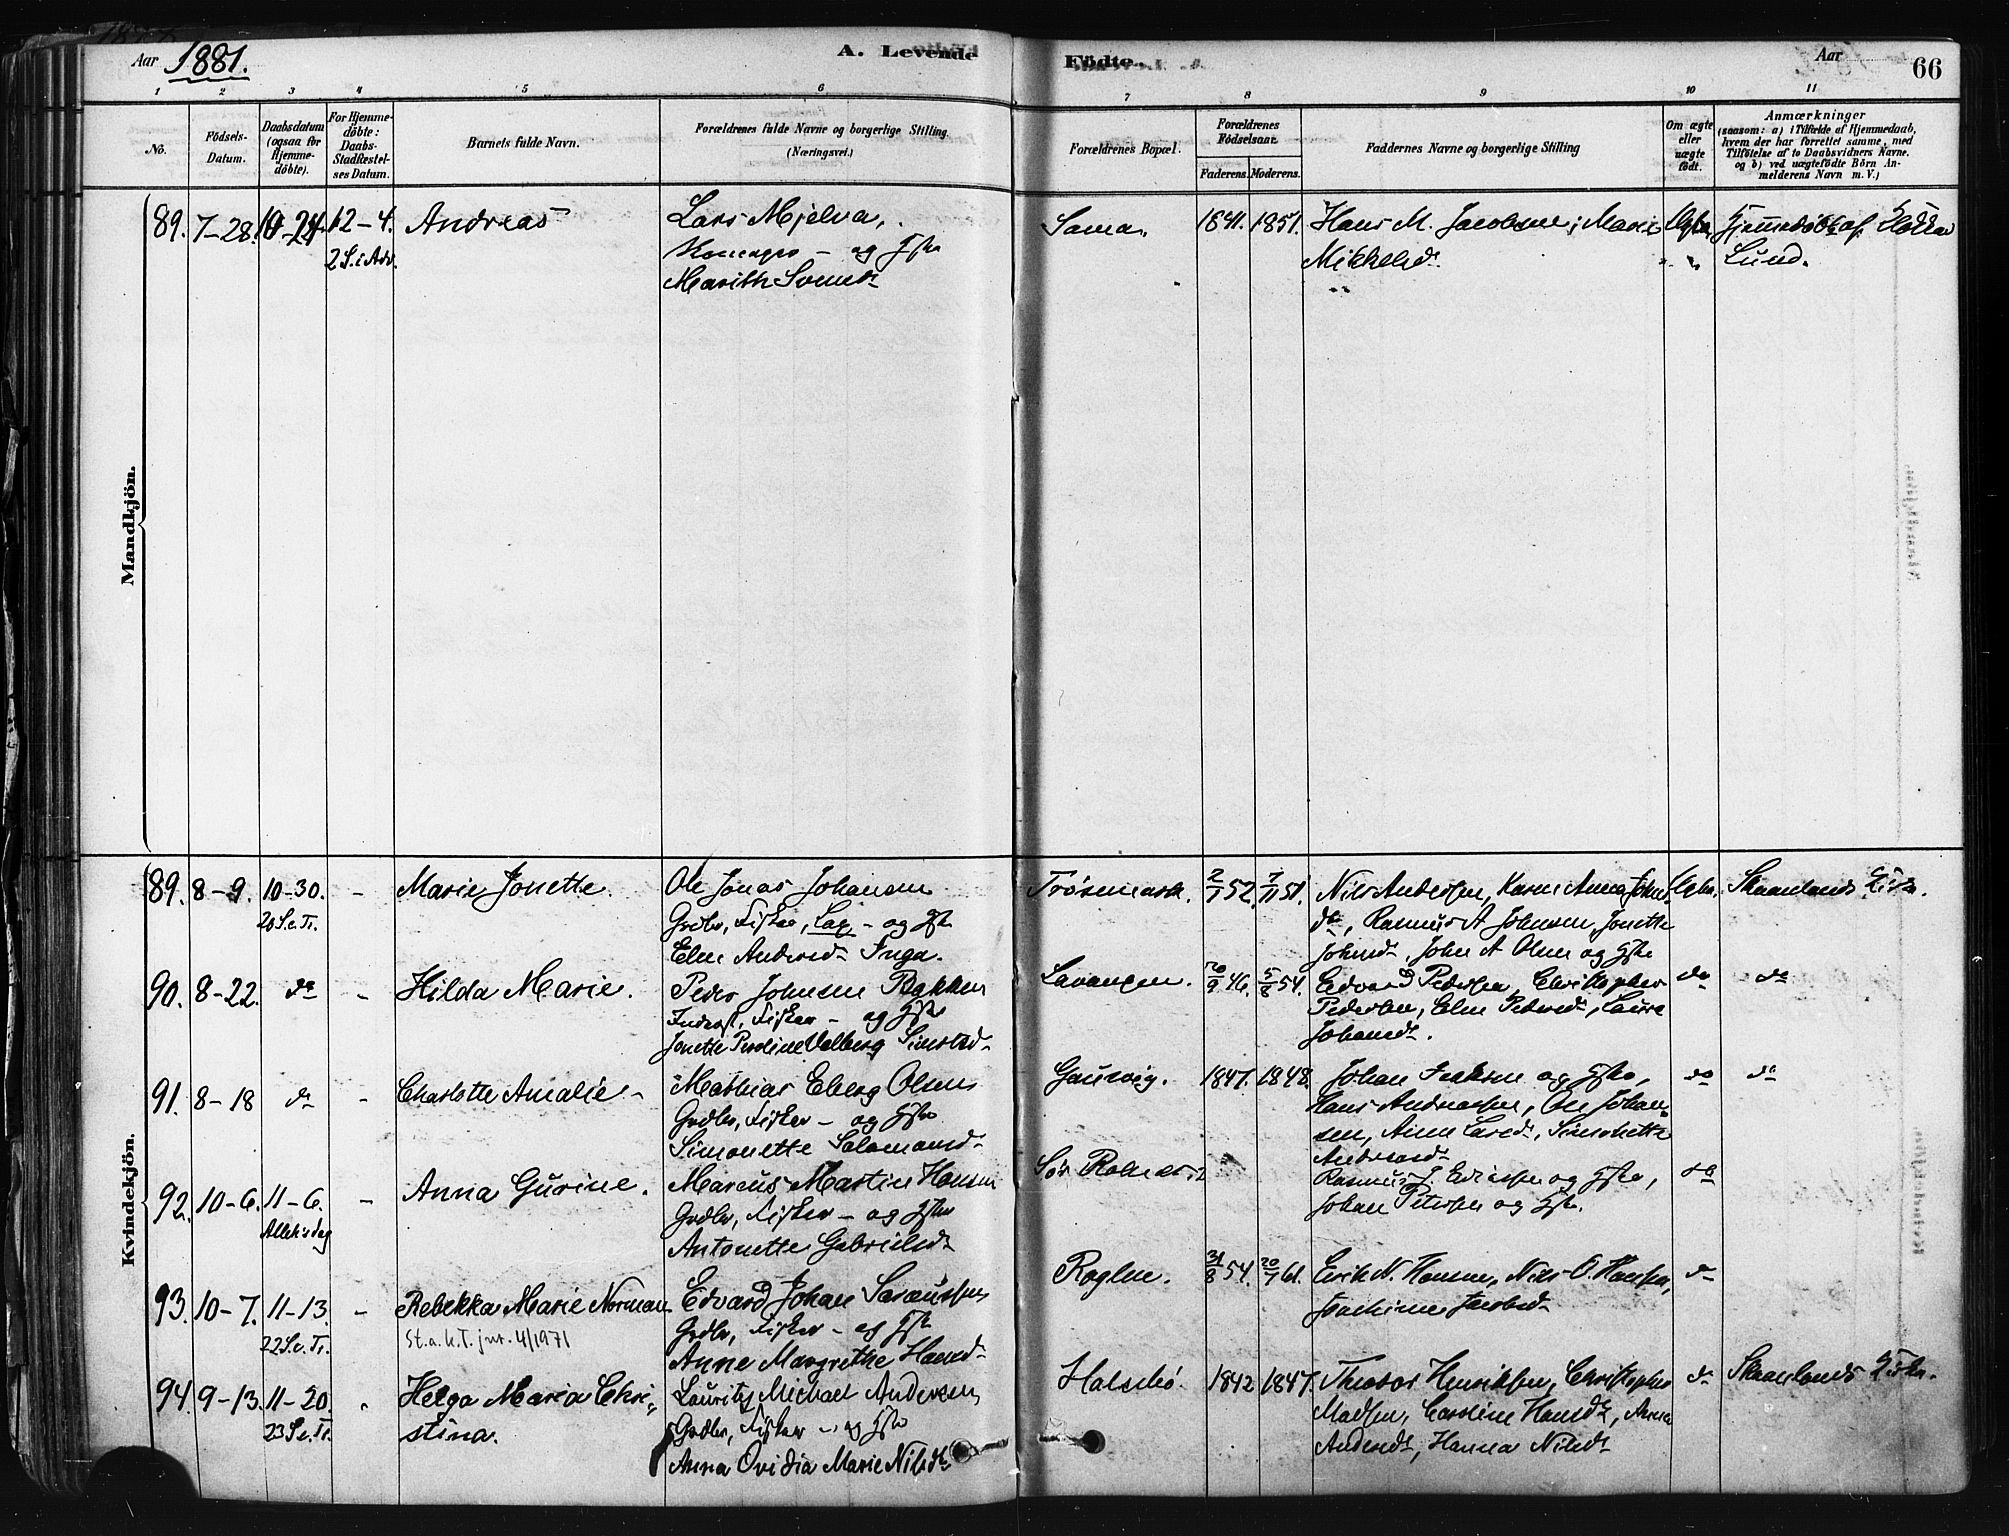 Aar 1881.
A. Levende
Födte.
Aar
66
1 2 3 4 5 6
7 8 9 10 11
No.
Födsels-
Datum.
Daabsdatum
(ogsaa for
Hjemme-
döbte).
For Hjemme-
döbte:
Daabs-
Stadfæstel-
ses Datum.
Barnets fulde Navn.
Forældrenes fulde Navne og borgerlige Stilling.
(Næringsvei.)
Forældrenes Bopæl.
Forældrenes
Födselsaar.
Faderens. Moderens.
Faddernes Navne og borgerlige Stilling
Om ægte
eller
uægte
födt.
Anmærkninger
(saasom: a) i Tilfælde af Hjemmedaab,
hvem der har forrettet samme, med
Tilföielse af to Daabsvidners Navne.
og b) ved uægtefödte Börn An-
melderens Navn m. V.)
Mandkjön.
89. 7-28. 12-4. Andreas
2 S. i Adv.
Lars Mjelva,
og Hst
Marith
1841. 1851.
Hans M. Jacobsen, Marie
Mikkelsd.
Ægte
Hjemmedöbt af
Lund.
Kvindekjön.
89. 8-9. 10-30. - Marie Jonette
20 S. e. Tr.
Ole Jonas Johansen
Grdbr, Fisker, Lap - og Hst
Elen Andersd. Inga.
2/1 52. 7/11 51.
Nils Andersen, Karen Anna Johns
dr, Rasmus A Johnsen, Jonette
Johnsd. John A Olsen og Hst
Ægte.
Skaanlands Kirke.
90. 8-22. do - Hilda Marie.
Peder Johnsen Bakken
Inderst, Fisker - og Hst
Jonette Perdline Valberg
Lavangen.
46. 5/8 54.
Edvard Pedersen, Christopher
Pedersen, Elen Pedersd, Laura
Johansd.
do do
91. 8-18 do - Charlotte Amalie -
Mathias Eberg Olsen
Grdbr, Fisker - og Hst
Simonette Salamonsd.
Gausvig.
1847. 1848.
Johan Isaksen og Hst,
Hans Andreassen, Ole Johan-
sen, Anne Larsd, Simonette
Andersd.
do do
92. 10-6. 11-6. - Anna Gurine.
Allehs dag
Marcus Martin Hansen
Grdbr, Fisker - og Hst
Antonette Gabrielsd.
Sör Rolnes
Rasmus J. Ericksen og Hst,
Johan Petersen og Hst.
do
93. 10-7. 11-13. - Rebekka Marie Norman
22 S. e. Tr.
St.a.k.T. jnr. 4/1971
Edvard Johan
Grdbr, Fisker - og Hst
Anne Margrethe Hansd.
Roglen.
31/8 54. 20/1 61.
Erik N. Hansen, Nils O. Hansen,
Joachime Jacobsd.
do
94. 9-13. 11-20. - Helga Maria Chri-
23 S. e. Tr.
stina.
Laurits Michael Andersen
Grdbr, Fisker - og Hst
Anna Ovidia Marie Nilsd.
Halsebö.
1842 1847.
Theodor Henriksen, Christopher
Madsen, Caroline Hansd, Anna
Andersd, Hanna Nilsd
do
Skaanlands Kirke.